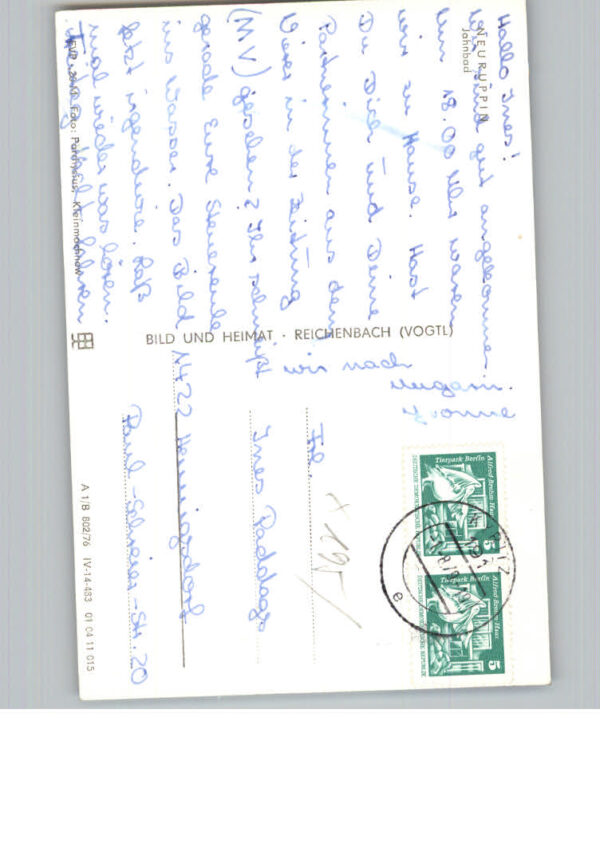 NEURUPPIN
Jahnbad
Hallo Ines!
Wir sind gut angekommen.
Um 18.00 Uhr waren
wir zu Hause. Hast
Du Dich und Deine
Partnerinnen aus dem
Vierer in der Zeitung
(MV) gesehen? Ihr schmeißt
gerade Eure Steuereule
ins Wasser. Das Bild
fetzt irgendwie. Laß
mal wieder was hören.
Freitag fahren
wir nach
Ungarn.
Yvonne
Foto: Parchysius, Kleinmachnow
BILD UND HEIMAT · REICHENBACH (VOGTL)
A 1/B 802/76 IV-14-483 01 04 11 015
Frl.
Ines Paddags
1422 Hennigsdorf
Paul-Schreier-Str. 20
Tierpark Berlin Alfred Brehm Haus
DEUTSCHE DEMOKRATISCHE
5
Tierpark Berlin Alfred Brehm Haus
DEUTSCHE DEMOKRATISCHE REPUBLIK
5
e